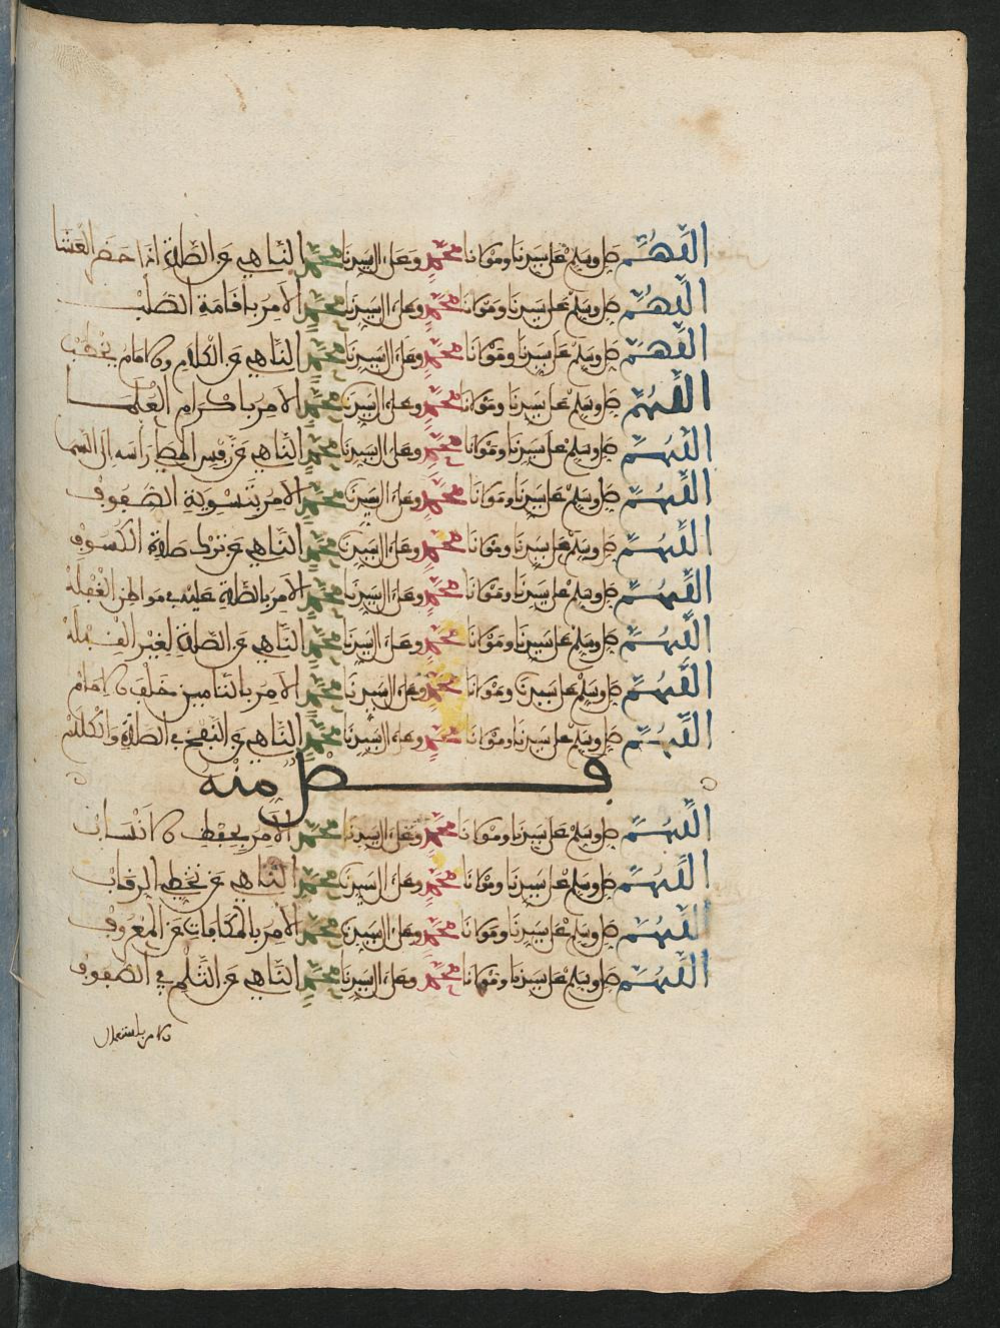 اللهم صل وسلم على سيدنا ومولانا محمد وعلى ءال سيدنا محمد الناهي عن الصلاة اذا حضر العشا
اللهم صل وسلم على سيدنا ومولانا محمد وعلى ءال سيدنا محمد الامر باقامة الصلب
اللهم صل وسلم على سيدنا ومولانا محمد وعلى ءال سيدنا محمد الناهي عن الكلام والامام يخطب
اللهم صل وسلم على سيدنا ومولانا محمد وعلى ءال سيدنا محمد الامر باكرام العلما
اللهم صل وسلم على سيدنا ومولانا محمد وعلى ءال سيدنا محمد الناهي عن رفع المصلي راسه الى السما
اللهم صل وسلم على سيدنا ومولانا محمد وعلى ءال سيدنا محمد الامر بتسوية الصفوف
اللهم صل وسلم على سيدنا ومولانا محمد وعلى ءال سيدنا محمد الناهي عن ترك صلاة الكسوف
اللهم صل وسلم على سيدنا ومولانا محمد وعلى ءال سيدنا محمد الامر بالصلاة عليه في مواطن الغفلة
اللهم صل وسلم على سيدنا ومولانا محمد وعلى ءال سيدنا محمد الناهي عن الصلاة لغير القبلة
اللهم صل وسلم على سيدنا ومولانا محمد وعلى ءال سيدنا محمد الامر بالتامين خلف الامام
اللهم صل وسلم على سيدنا ومولانا محمد وعلى ءال سيدنا محمد الناهي عن النفخ في الصلاة والكلام
فصل منه
اللهم صل وسلم على سيدنا ومولانا محمد وعلى ءال سيدنا محمد الامر بحفظ الانساب
اللهم صل وسلم على سيدنا ومولانا محمد وعلى ءال سيدنا محمد الناهي عن تخطي الرقاب
اللهم صل وسلم على سيدنا ومولانا محمد وعلى ءال سيدنا محمد الامر بالمكافات عن المعروف
اللهم صل وسلم على سيدنا ومولانا محمد وعلى ءال سيدنا محمد الناهي عن الثلم في الصفوف
الامر باستعمال